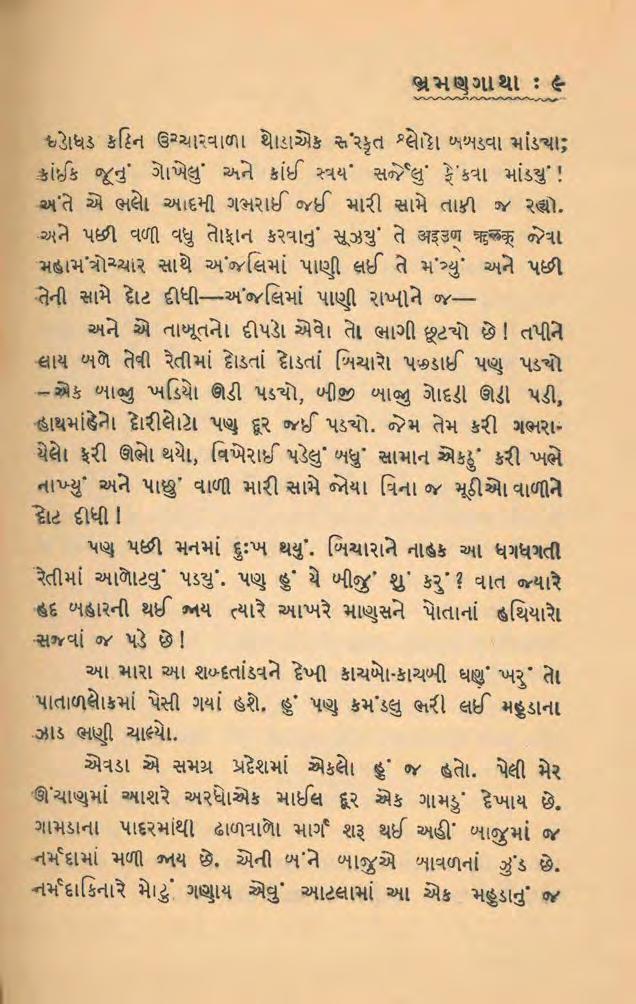 ભ્રમણગાથા : ૯
ધડાધડ કઠિન ઉચ્ચારવાળા થોડાએક સંસ્કૃત શ્લોકો બબડવા માંડ્યા;
કાંઈક જૂનું ગોખેલું અને કાંઈ સ્વયં સર્જેલું ફેંકવા માંડ્યું !
અંતે એ ભલો આદમી ગભરાઈ જઈ મારી સામે તાકી જ રહ્યો.
અને પછી વળી વધુ તોફાન કરવાનું સૂઝયું તે अइउण् ऋलृक् જેવા
મહામંત્રોચ્ચાર સાથે અંજલિમાં પાણી લઈ તે મંત્ર્યું અને પછી
તેની સામે દોટ દીધી—અંજલિમાં પાણી રાખીને જ—
અને એ તાબૂતનો દીપડો એવો તો ભાગી છૂટચો છે ! તપીને
લાય બળે તેવી રેતીમાં દોડતાં દોડતાં બિચારો પછડાઈ પણ પડયો
—એક બાજુ ખડિયો ઊડી પડચો, બીજી બાજુ ગોદડી ઊડી પડી,
હાથમાંહેનો દોરીલોટો પણ દૂર જઈ પડચો. જેમ તેમ કરી ગભરા-
યેલો ફરી ઊભો થયો, વિખેરાઈ પડેલું બધું સામાન એકઠું કરી ખભે
નાખ્યું અને પાછું વાળી મારી સામે જોયા વિના જ મૂઠીઓ વાળીને
દોટ દીધી !
પણ પછી મનમાં દુઃખ થયું. બિચારાને નાહક આ ધગધગતી
રેતીમાં આળોટવું પડયું. પણ હું યે બીજું શું કરું ? વાત જ્યારે
હદ બહારની થઈ જાય ત્યારે આખરે માણસને પોતાનાં હથિયારો
સજવાં જ પડે છે !
આ મારા આ શબ્દતાંડવને દેખી કાચબો-કાચબી ઘણું ખરું તો
પાતાળલોકમાં પેસી ગયાં હશે. હું પણ કમંડલુ ભરી લઈ મહુડાના
ઝાડ ભણી ચાલ્યો.
એવડા એ સમગ્ર પ્રદેશમાં એકલો હું જ હતો. પેલી મેર
ઊંચાણમાં આશરે અરધોએક માઈલ દૂર એક ગામડું દેખાય છે.
ગામડાના પાદરમાંથી ઢાળવાળો માર્ગ શરૂ થઈ અહીં બાજુમાં જ
નર્મદામાં મળી જાય છે. એની બંને બાજુએ બાવળનાં ઝુંડ છે.
નર્મદાકિનારે મોટું ગણાય એવું આટલામાં આ એક મહુડાનું જ